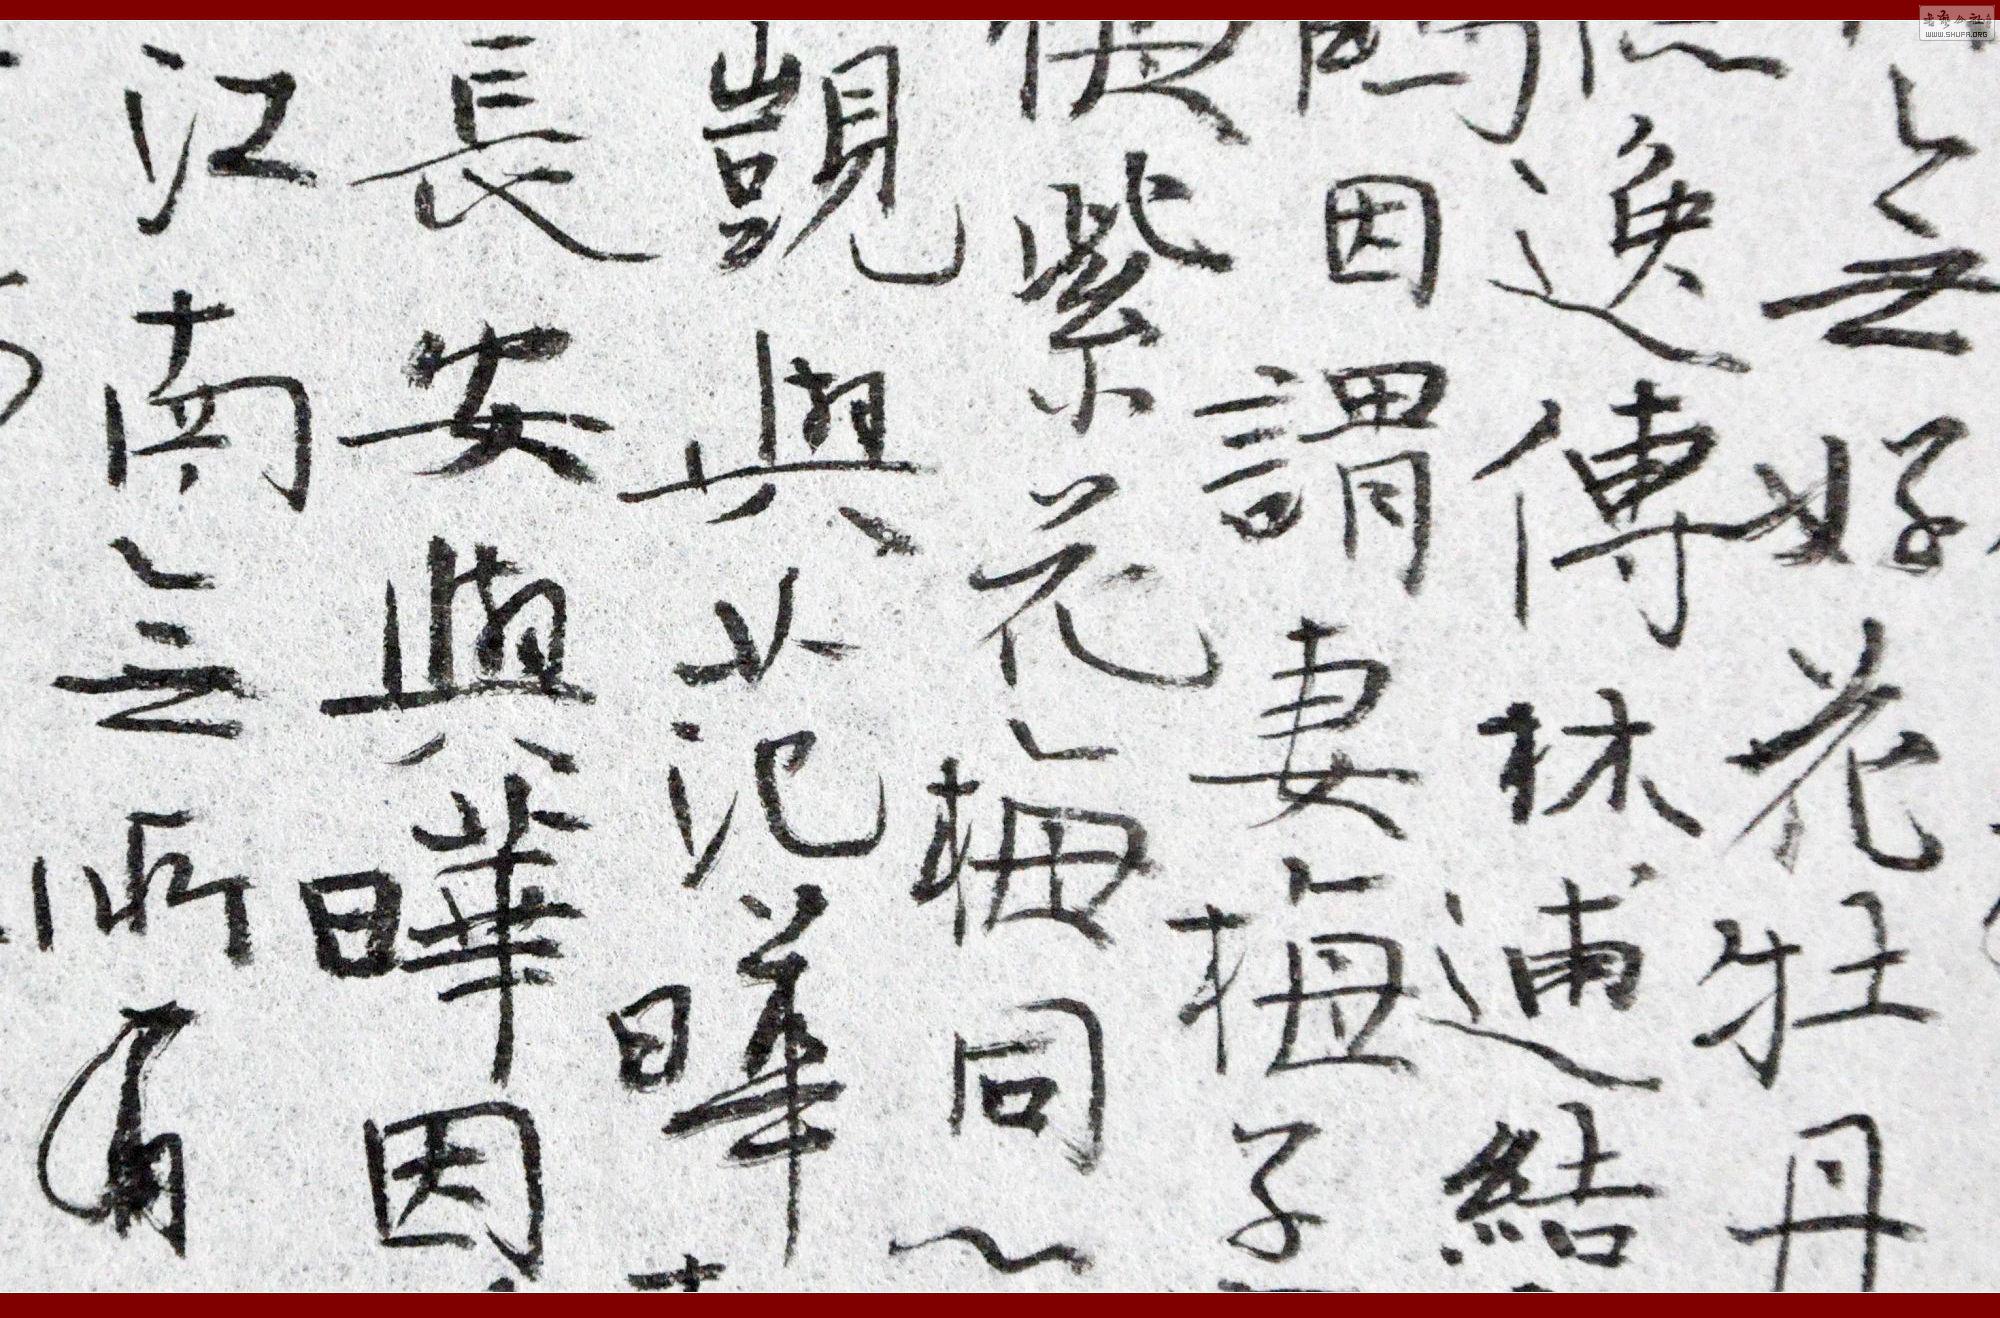 無好花牡丹
逸傳林逋結
因謂妻梅子
紫花梅同
覬與范曄
長安與曄因
江南無所有
WWW.SHUFA.ORG